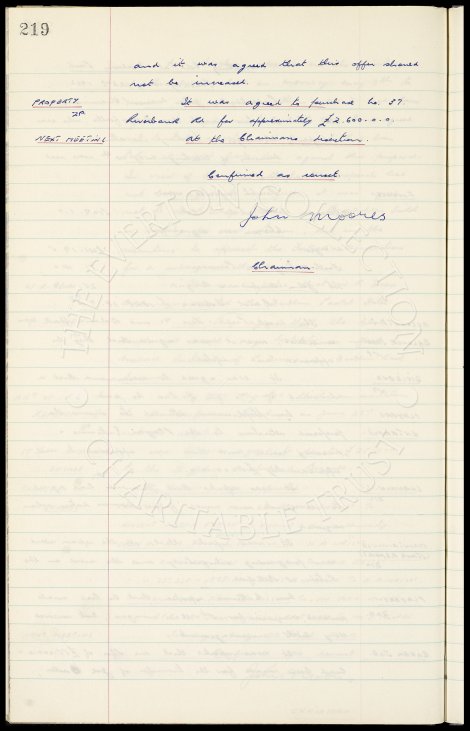 219
and it was agreed that this offer should
not be increased.
PROPERTY It was agreed to purchase No. 37
Riverbank Rd for approximately £2,600.0.0.
NEXT MEETING At the Chairmans discretion.
Confirmed as correct.
John Moores
Chairman.
THE EVERTON COLLECTION
CHARITABLE TRUST